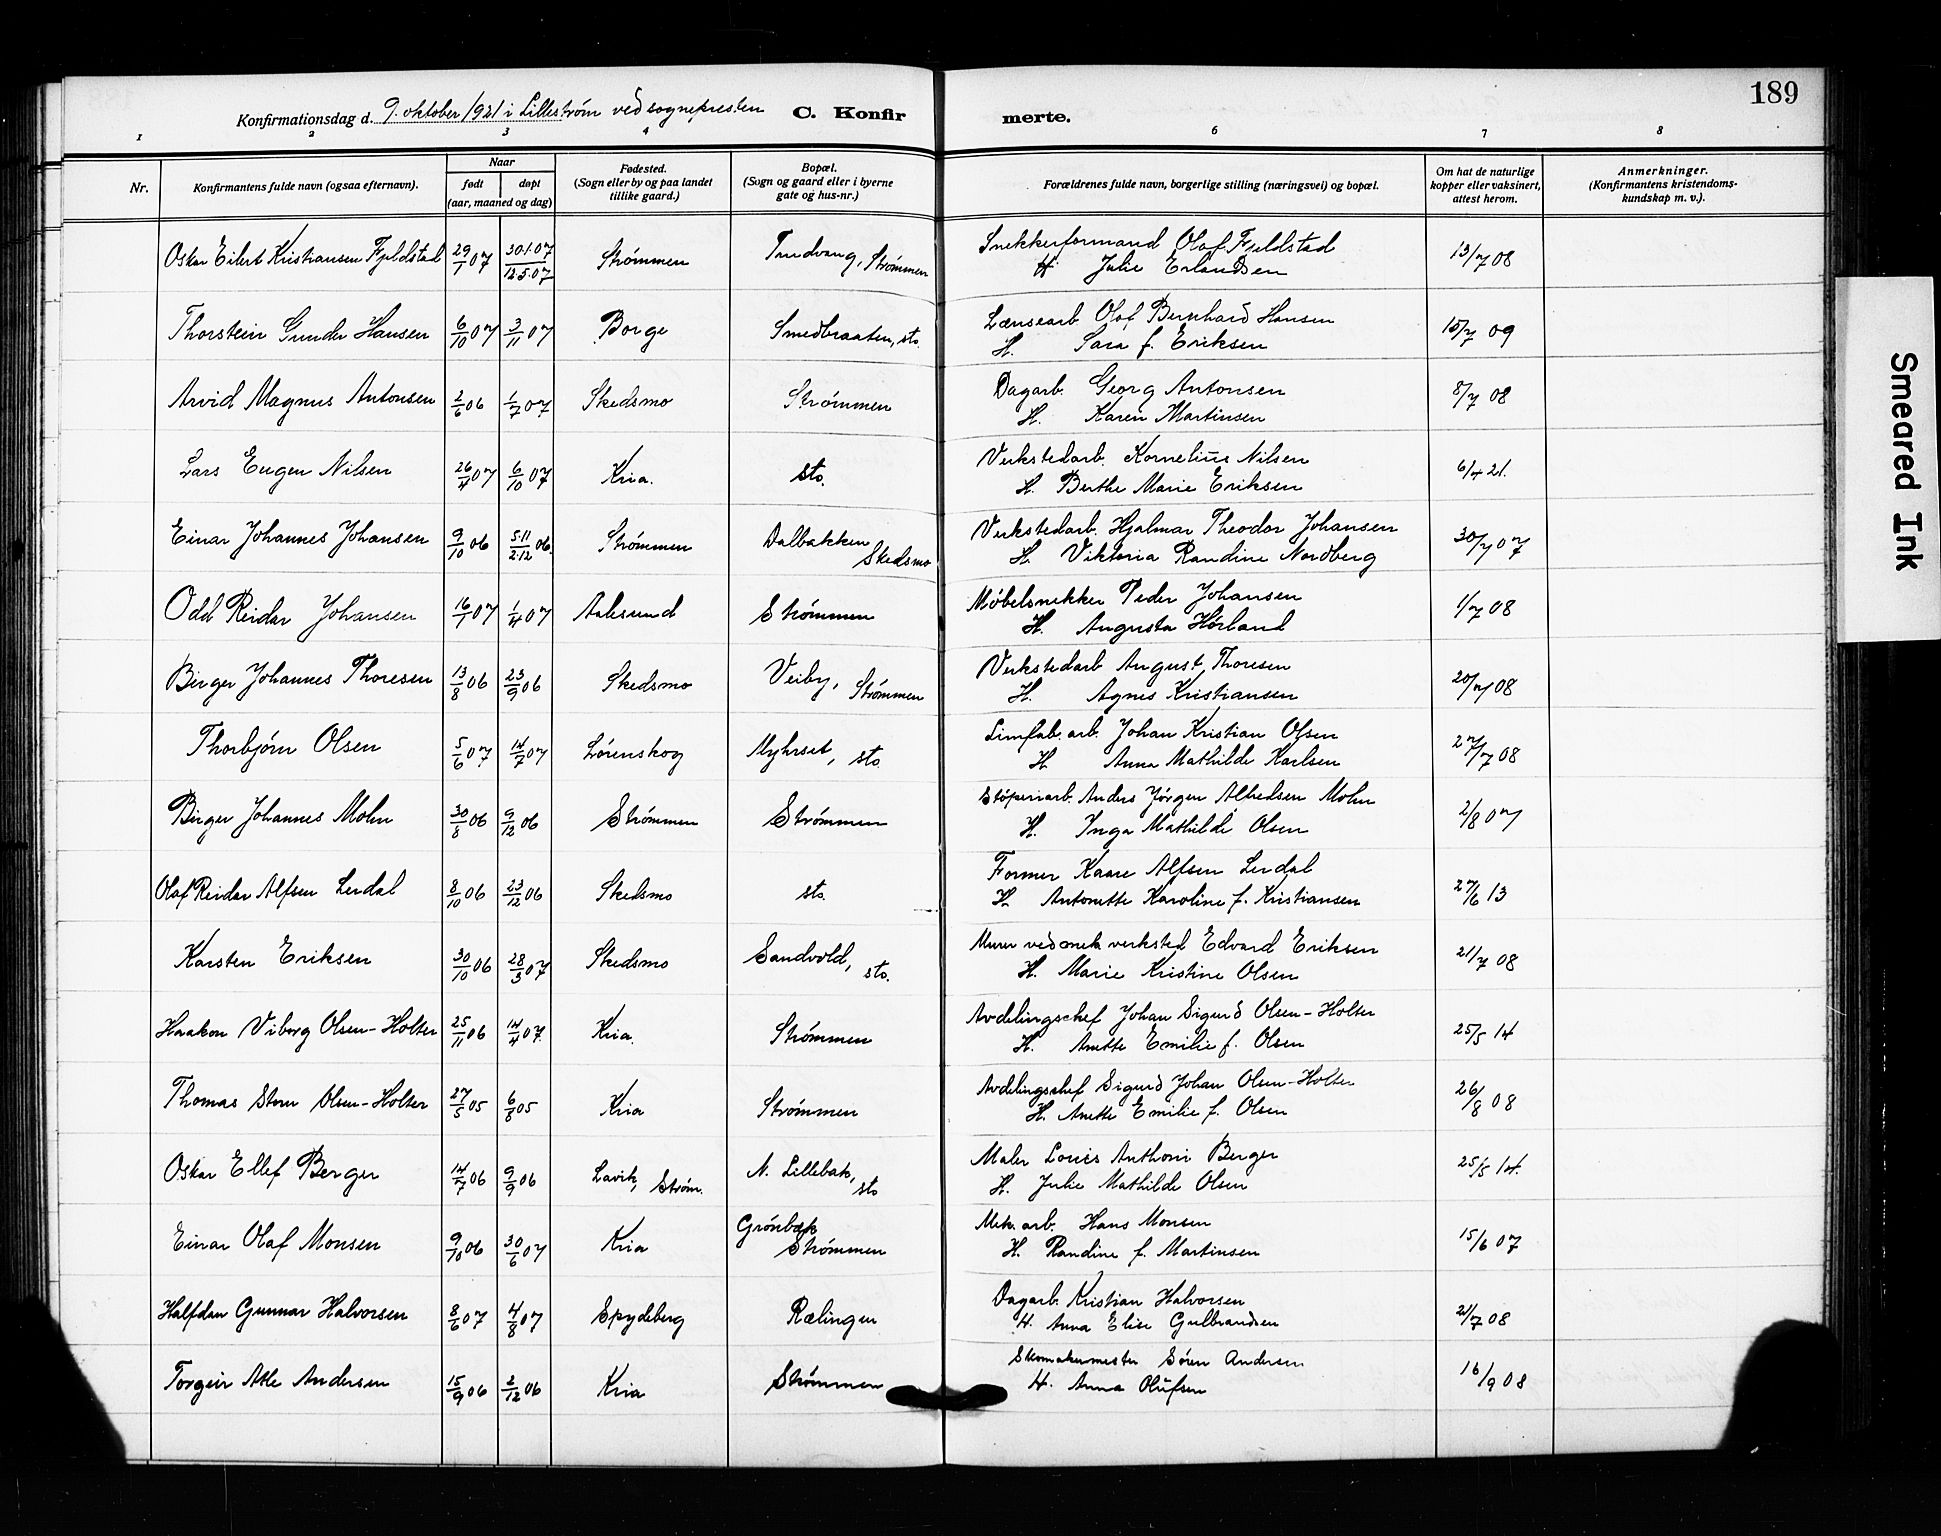 189
Konfirmationsdag d. 9. oktober 1921 i Lillestrøm ved sognepresten C. Konfirmerte.
1 2 3 4 6 7 8
Nr.
Konfirmantens fulde navn (ogsaa efternavn).
Naar
født døpt
(aar, maaned og dag)
Fødested.
(Sogn eller by og paa landet
tillike gaard.)
Bopæl.
(Sogn og gaard eller i byerne
gate og hus-nr.)
Forældrenes fulde navn, borgerlige stilling (næringsvei) og bopæl.
Om hat de naturlige
kopper eller vaksinert,
attest herom.
Anmerkninger.
(Konfirmantens kristendoms-
kundskap m. v.).
Oskar Eilert Kristiansen Fjeldstad 29/1 07 30.1.07/12.5.07 Strømmen Trudvang, Strømmen Snekkerformand Olaf Fjeldstad 13/7 08
H. Julie Erlandsen
Thorstein Gunder Hansen 6/10 07 3/11 07 Borge Smedbraaten, sto. Lænsearb. Olof Bernhard Hansen 15/7 09
H. Sara f. Eriksen
Arvid Magnus Antonsen 2/6 06 1/7 07 Skedsmo Strømmen Dagarb. Georg Antonsen 8/7 08
H. Karen Martinsen
Lars Eugen Nilsen 26/4 07 6/10 07 Kria. sto. Verkstedarb. Kornelius Nilsen 6/4 21.
H. Berthe Marie Eriksen
Einar Johannes Johansen 9/10 06 5.11/2.12 06. Strømmen Dalbakken Skedsmo Verkstedarb. Hjalmar Theodor Johansen 30/7 07
H. Viktoria Randine Nordberg
Odd Reidar Johansen 16/1 07 1/4 07 Aalesund Strømmen Møbelsnekker Peder Johansen 1/7 08
H. Augusta Hørland
Birger Johannes Thoresen 13/8 06 23/9 06 Skedsmo Veiby, Strømmen Verkstedarb August Thoresen 20/7 08
H. Agnes Kristiansen
Thorbjørn Olsen 5/6 07 14/7 07 Lørenskog Myhrset, sto. Limfab. arb. Johan Kristian Olsen 27/7 08
H Anna Mathilde Karlsen
Birger Johannes Mohn 30/8 06 9/12 06 Strømmen Strømmen Støperiarb. Anders Jørgen Alfredsen Mohn 2/8 07
H. Inga Mathilde Olsen
Olaf Reidar Alfsen Lerdal 8/10 06 23/12 06 Skedsmo sto. Former Kaare Alfsen Lerdal 27/6 13
H. Antonette Karoline f. Kristiansen
Karsten Eriksen 30/10 06 28/3 07 Skedsmo Sandvold, sto. Murer ved mek verksted Edvard Eriksen 21/7 08
H. Marie Kristine Olsen
Haakon Viborg Olsen-Holter 25/11 06 14/4 07. Kria. Strømmen Avdelingschef Johan Sigurd Olsen-Holter 25/5 14
H. Anette Emilie f. Olsen
Thomas Stern Olsen-Holter 27/5 05 6/8 05 Kria Strømmen Avdelingschef Sigurd Johan Olsen-Holter 26/8 08
H. Anette Emilie f. Olsen
Oskar Ellef Berger 14/7 06 9/9 06 Lavik, Strøm. N. Lillebak, sto Maler Louis Anthoni Berger 25/5 14.
H. Julie Mathilde Olsen
Einar Olaf Monsen 9/10 06 30/6 07 Kria Grønbæk Strømmen Mek. arb. Hans Monsen 15/6 07
H. Randine f. Martinsen
Halfdan Gunnar Halvorsen 8/6 07 4/8 07 Spydeberg Rælingen Dagarb. Kristian Halvorsen 21/7 08
H. Anna Elise Gulbrandsen
Torgeir Atle Andersen 15/9 06 2/12 06 Kria Strømmen Skomakermester Søren Andersen 16/9 08
H. Anna Olufsen
Smeared Ink